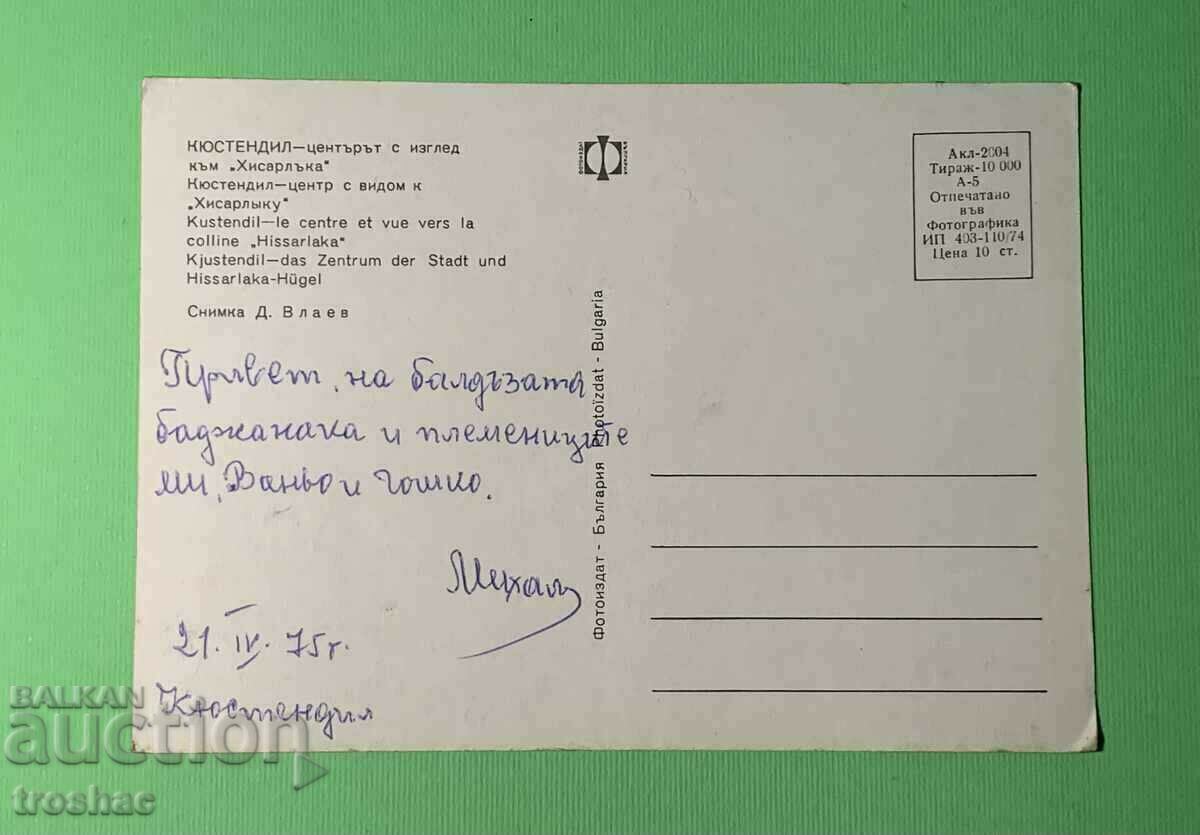 КЮСТЕНДИЛ—центърът с изглед
към „Хисарлъка“
Кюстендил—центр с видом к
„Хисарлыку“
Kustendil—le centre et vue vers la
colline „Hissarlaka“
Kjustendil—das Zentrum der Stadt und
Hissarlaka-Hügel
Снимка Д. Влаев
Привет, на балдъзата
баджанака и племениците
ми, Ваньо и Гошко.
21. IV. 75г.
Кюстендил
Фотоиздат - България Photoïzdat - Bulgaria
Акл-2004
Тираж-10 000
А-5
Отпечатано
във
Фотографика
ИП 403-110/74
Цена 10 ст.
BALKAN
auction
troshac